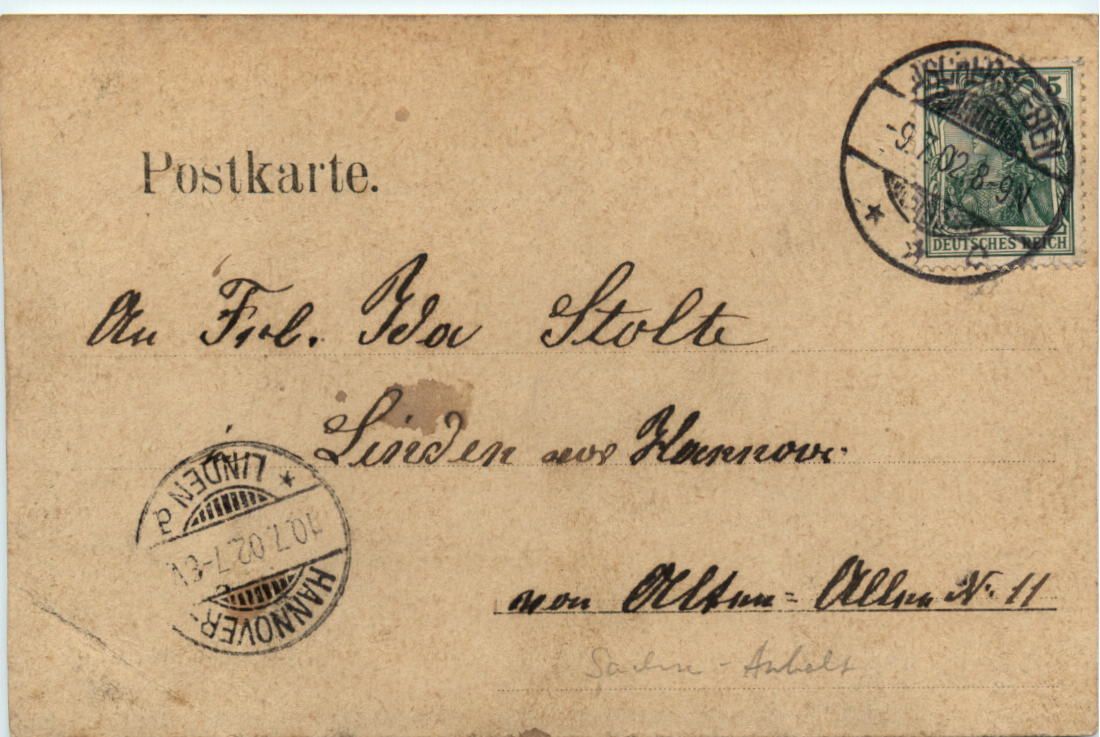 Postkarte.
ASCHERSLEBEN
-9.7.02.8-9N
c
5 5
DEUTSCHES REICH
An Frl. Ida Stolte
Linden vor Hannover
von Alten=Allee Nr. 11
Sachsen-Anhalt
HANNOVER-LINDEN
10.7.02.7-8V